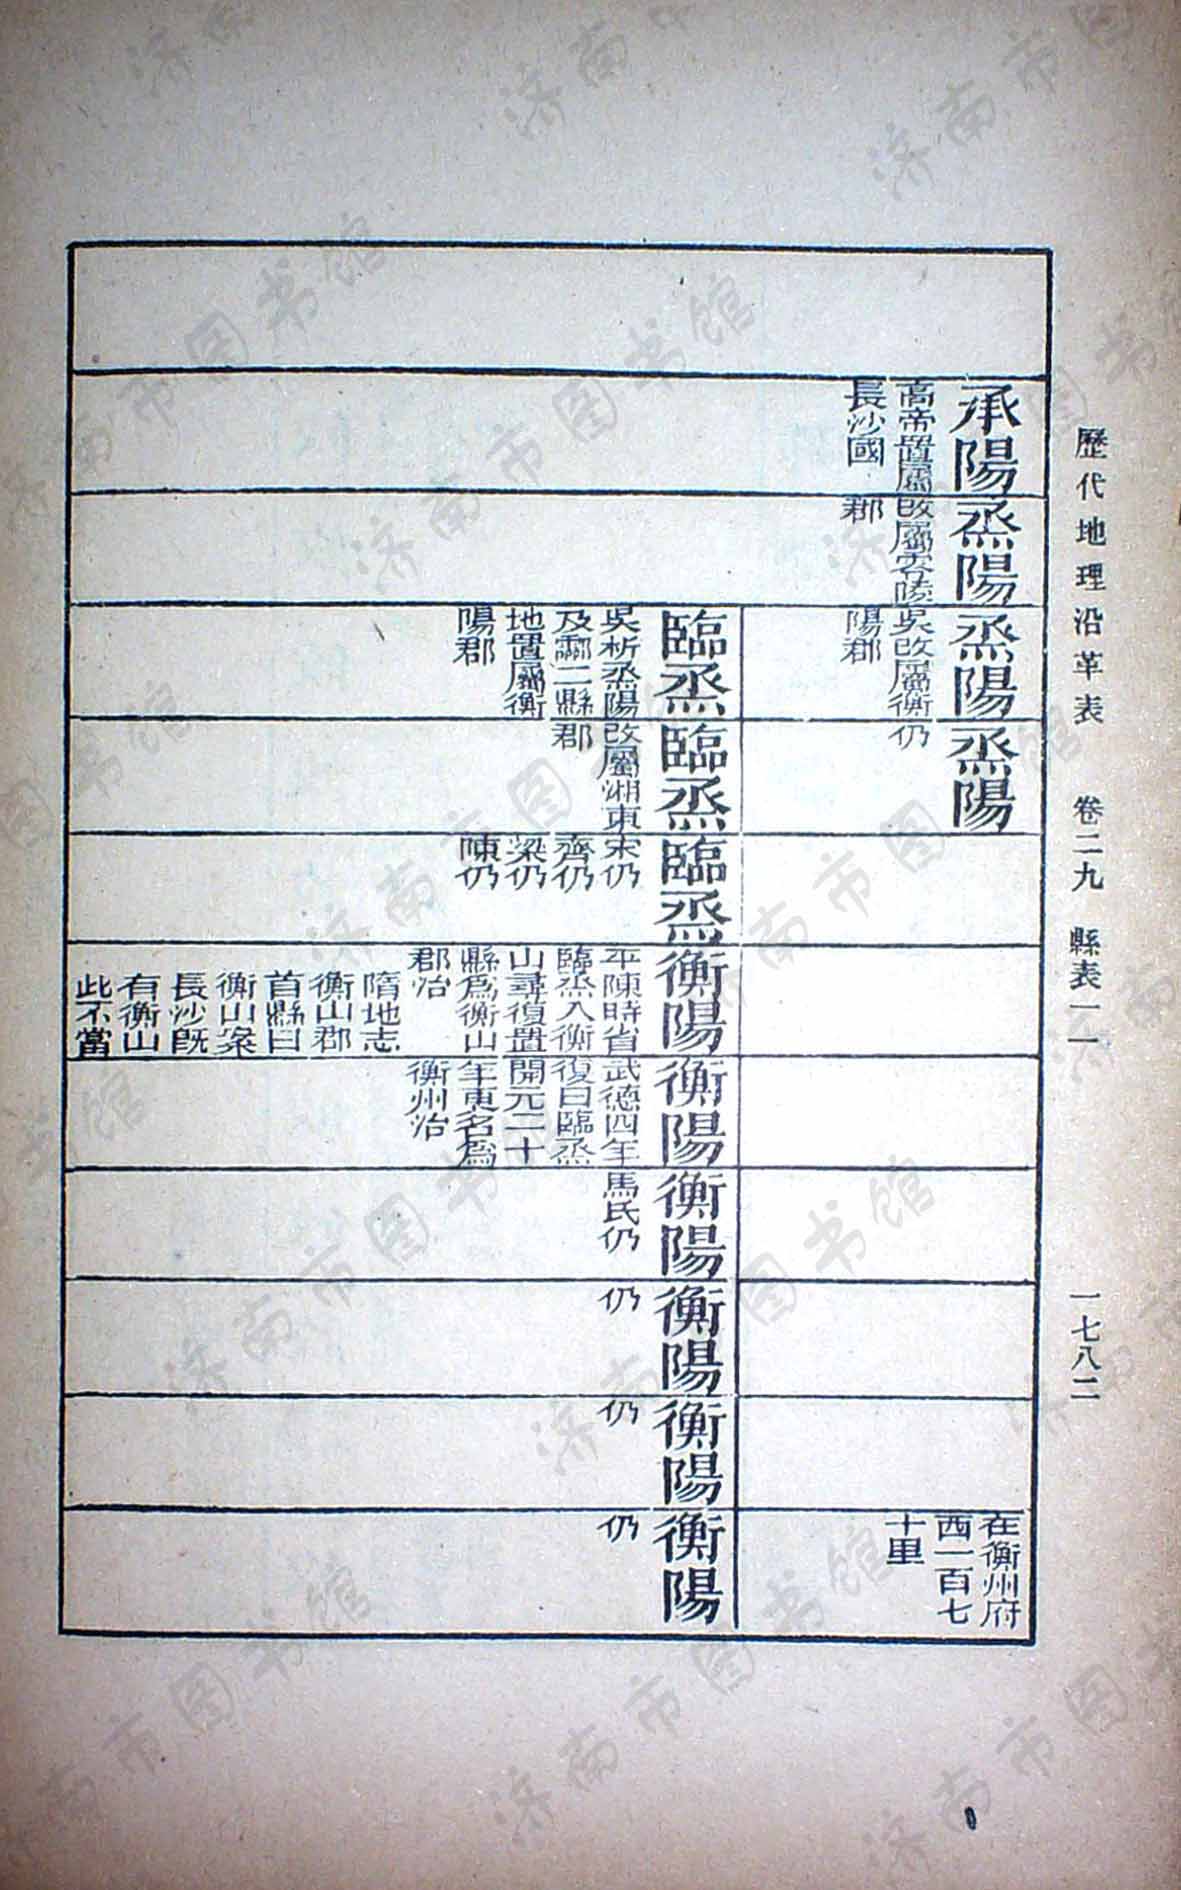 歷代地理沿革表 卷二九 縣表一一 一七八二
承陽
高帝置屬
長沙國
烝陽
改屬零陵
郡
烝陽
吳改屬衡
陽郡
烝陽
仍
在衡州府
西一百七
十里
臨烝
吳析烝陽
及酃二縣
地置屬衡
陽郡
臨烝
改屬湘東
郡
臨烝
宋仍
齊仍
梁仍
陳仍
衡陽
平陳時省
臨烝入衡
山尋復置
縣爲衡山
郡治
隋地志
衡山郡
首縣曰
衡山案
長沙旣
有衡山
此不當
衡陽
武德四年
復曰臨烝
開元二十
年更名爲
衡州治
衡陽
馬氏仍
衡陽
仍
衡陽
仍
衡陽
仍
济南市图书馆